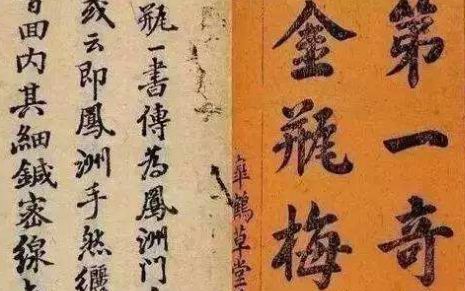 第一奇
金瓶梅
皋鶴草堂
瓶一書傳為鳳洲門
或云即鳳洲手然纚
回内其細鍼密線